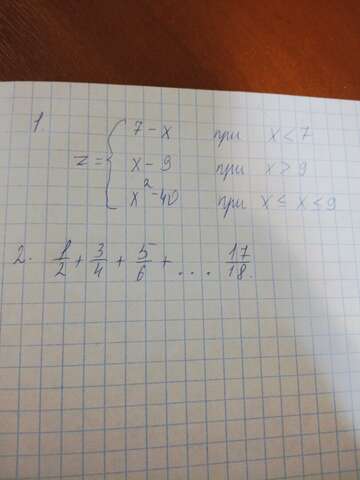 1.
7 - x при x < 7
z = { x - 9 при x > 9
x² - 40 при x ≤ x ≤ 9
2. 1/2 + 3/4 + 5/6 + ... 17/18.